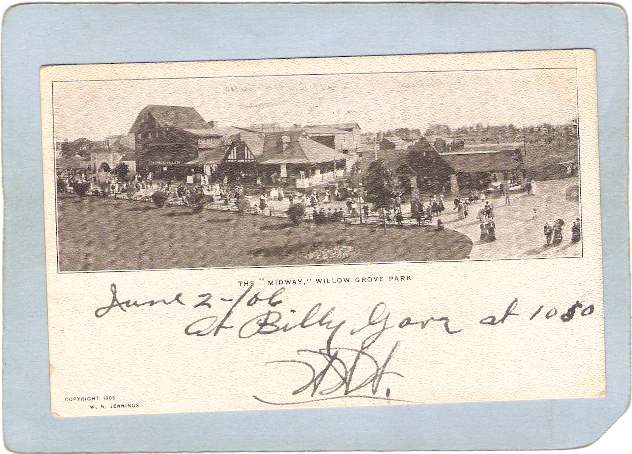 THE "MIDWAY," WILLOW GROVE PARK
June 2-/06
At Billy Gara at 1050
COPYRIGHT 1905
W. N. JENNINGS